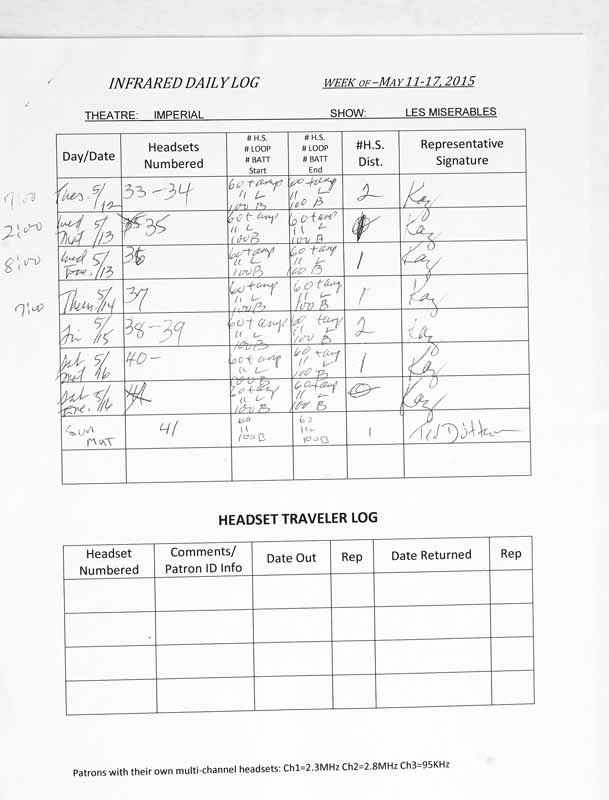 INFRARED DAILY LOG WEEK OF – MAY 11-17, 2015
THEATRE: IMPERIAL SHOW: LES MISERABLES
Day/Date Headsets Numbered # H.S. # LOOP # BATT Start # H.S. # LOOP # BATT End #H.S. Dist. Representative Signature
7:00 Tues. 5/12 33-34 60+amp 11 L 100 B 60+amp 11 L 100 B 2 Kaz
2:00 Wed Mat 5/13 35 60+amp 11 L 100B 60+amp 11 L 100B Kaz
8:00 Wed Eve. 5/13 36 60+amp 11 L 100B 60+amp 11 L 100 B 1 Kaz
7:00 Thurs. 5/14 37 60+amp 11 L 100B 60+amp 11 L 100 B 1 Kaz
Fri 5/15 38-39 60+amp 11 L 100B 60 +amp 11 L 100 B 2 Kaz
Sat Mat 5/16 40- 60+amp 11 L 100B 60+amp 11 L 100 B 1 Kaz
Sat Eve. 5/16 60+amp 11 L 100B 60+amp 11 L 100 B 0 Kaz
Sun Mat 41 60 11 100B 60 11L 100B 1
HEADSET TRAVELER LOG
Headset Numbered Comments/ Patron ID Info Date Out Rep Date Returned Rep
Patrons with their own multi-channel headsets: Ch1=2.3MHz Ch2=2.8MHz Ch3=95KHz